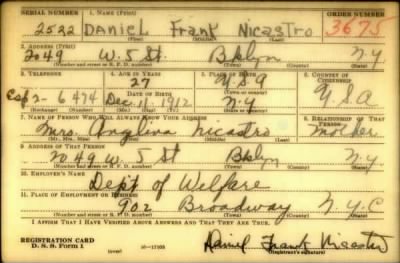 SERIAL NUMBER 1. NAME (Print) ORDER NUMBER
2522 Daniel Frank Nicastro 3675
(First) (Middle) (Last)
2. ADDRESS (Print)
2049 W. 5 St. Bklyn N.Y.
(Number and street or R. F. D. number) (Town) (County) (State)
3. TELEPHONE 4. AGE IN YEARS 5. PLACE OF BIRTH 6. COUNTRY OF CITIZENSHIP
27 U.S.A
DATE OF BIRTH (Town or county)
6474 Dec. 1912 N.Y U.S.A
(Exchange) (Number) (Mo.) (Day) (Yr.) (State or country)
7. NAME OF PERSON WHO WILL ALWAYS KNOW YOUR ADDRESS 8. RELATIONSHIP OF THAT PERSON
Mrs. Angelina Nicastro Mother
(Mr., Mrs., Miss) (First) (Middle) (Last)
9. ADDRESS OF THAT PERSON
2049 W. 5 St Bklyn N.Y
(Number and street or R. F. D. number) (Town) (County) (State)
10. EMPLOYER'S NAME
Dept of Welfare
11. PLACE OF EMPLOYMENT OR BUSINESS
902 Broadway N.Y.C
(Number and street or R. F. D. number) (Town) (County) (State)
I AFFIRM THAT I HAVE VERIFIED ABOVE ANSWERS AND THAT THEY ARE TRUE.
REGISTRATION CARD
D. S. S. FORM 1 (over) 16—17105 Daniel Frank Nicastro
(Registrant's signature)